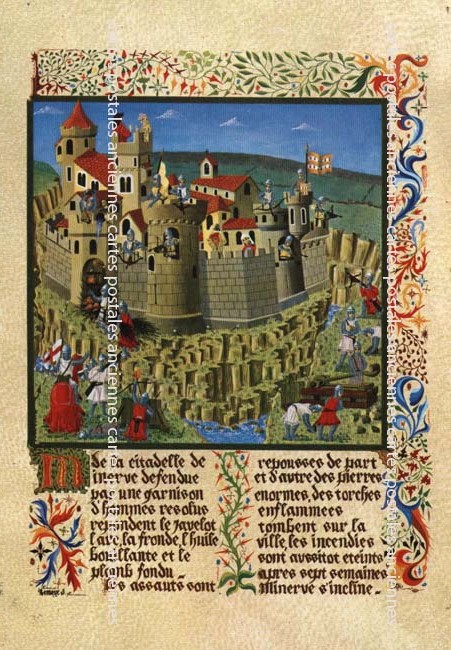 M
de la citadelle de
inerve defendue
par une garnison
d'hommes resolus
repondent le javelot
l'arc, la fronde, l'huile
bouillante et le
plomb fondu
les assauts sont
repousses de part
et d'autre, des pierres
enormes, des torches
enflammees
tombent sur la
ville, les incendies
sont aussitot eteints
apres sept semaines
Minerve s'incline
postales anciennes cartes postales anciennes cartes postales anciennes
postales anciennes cartes postales anciennes cartes postales anciennes